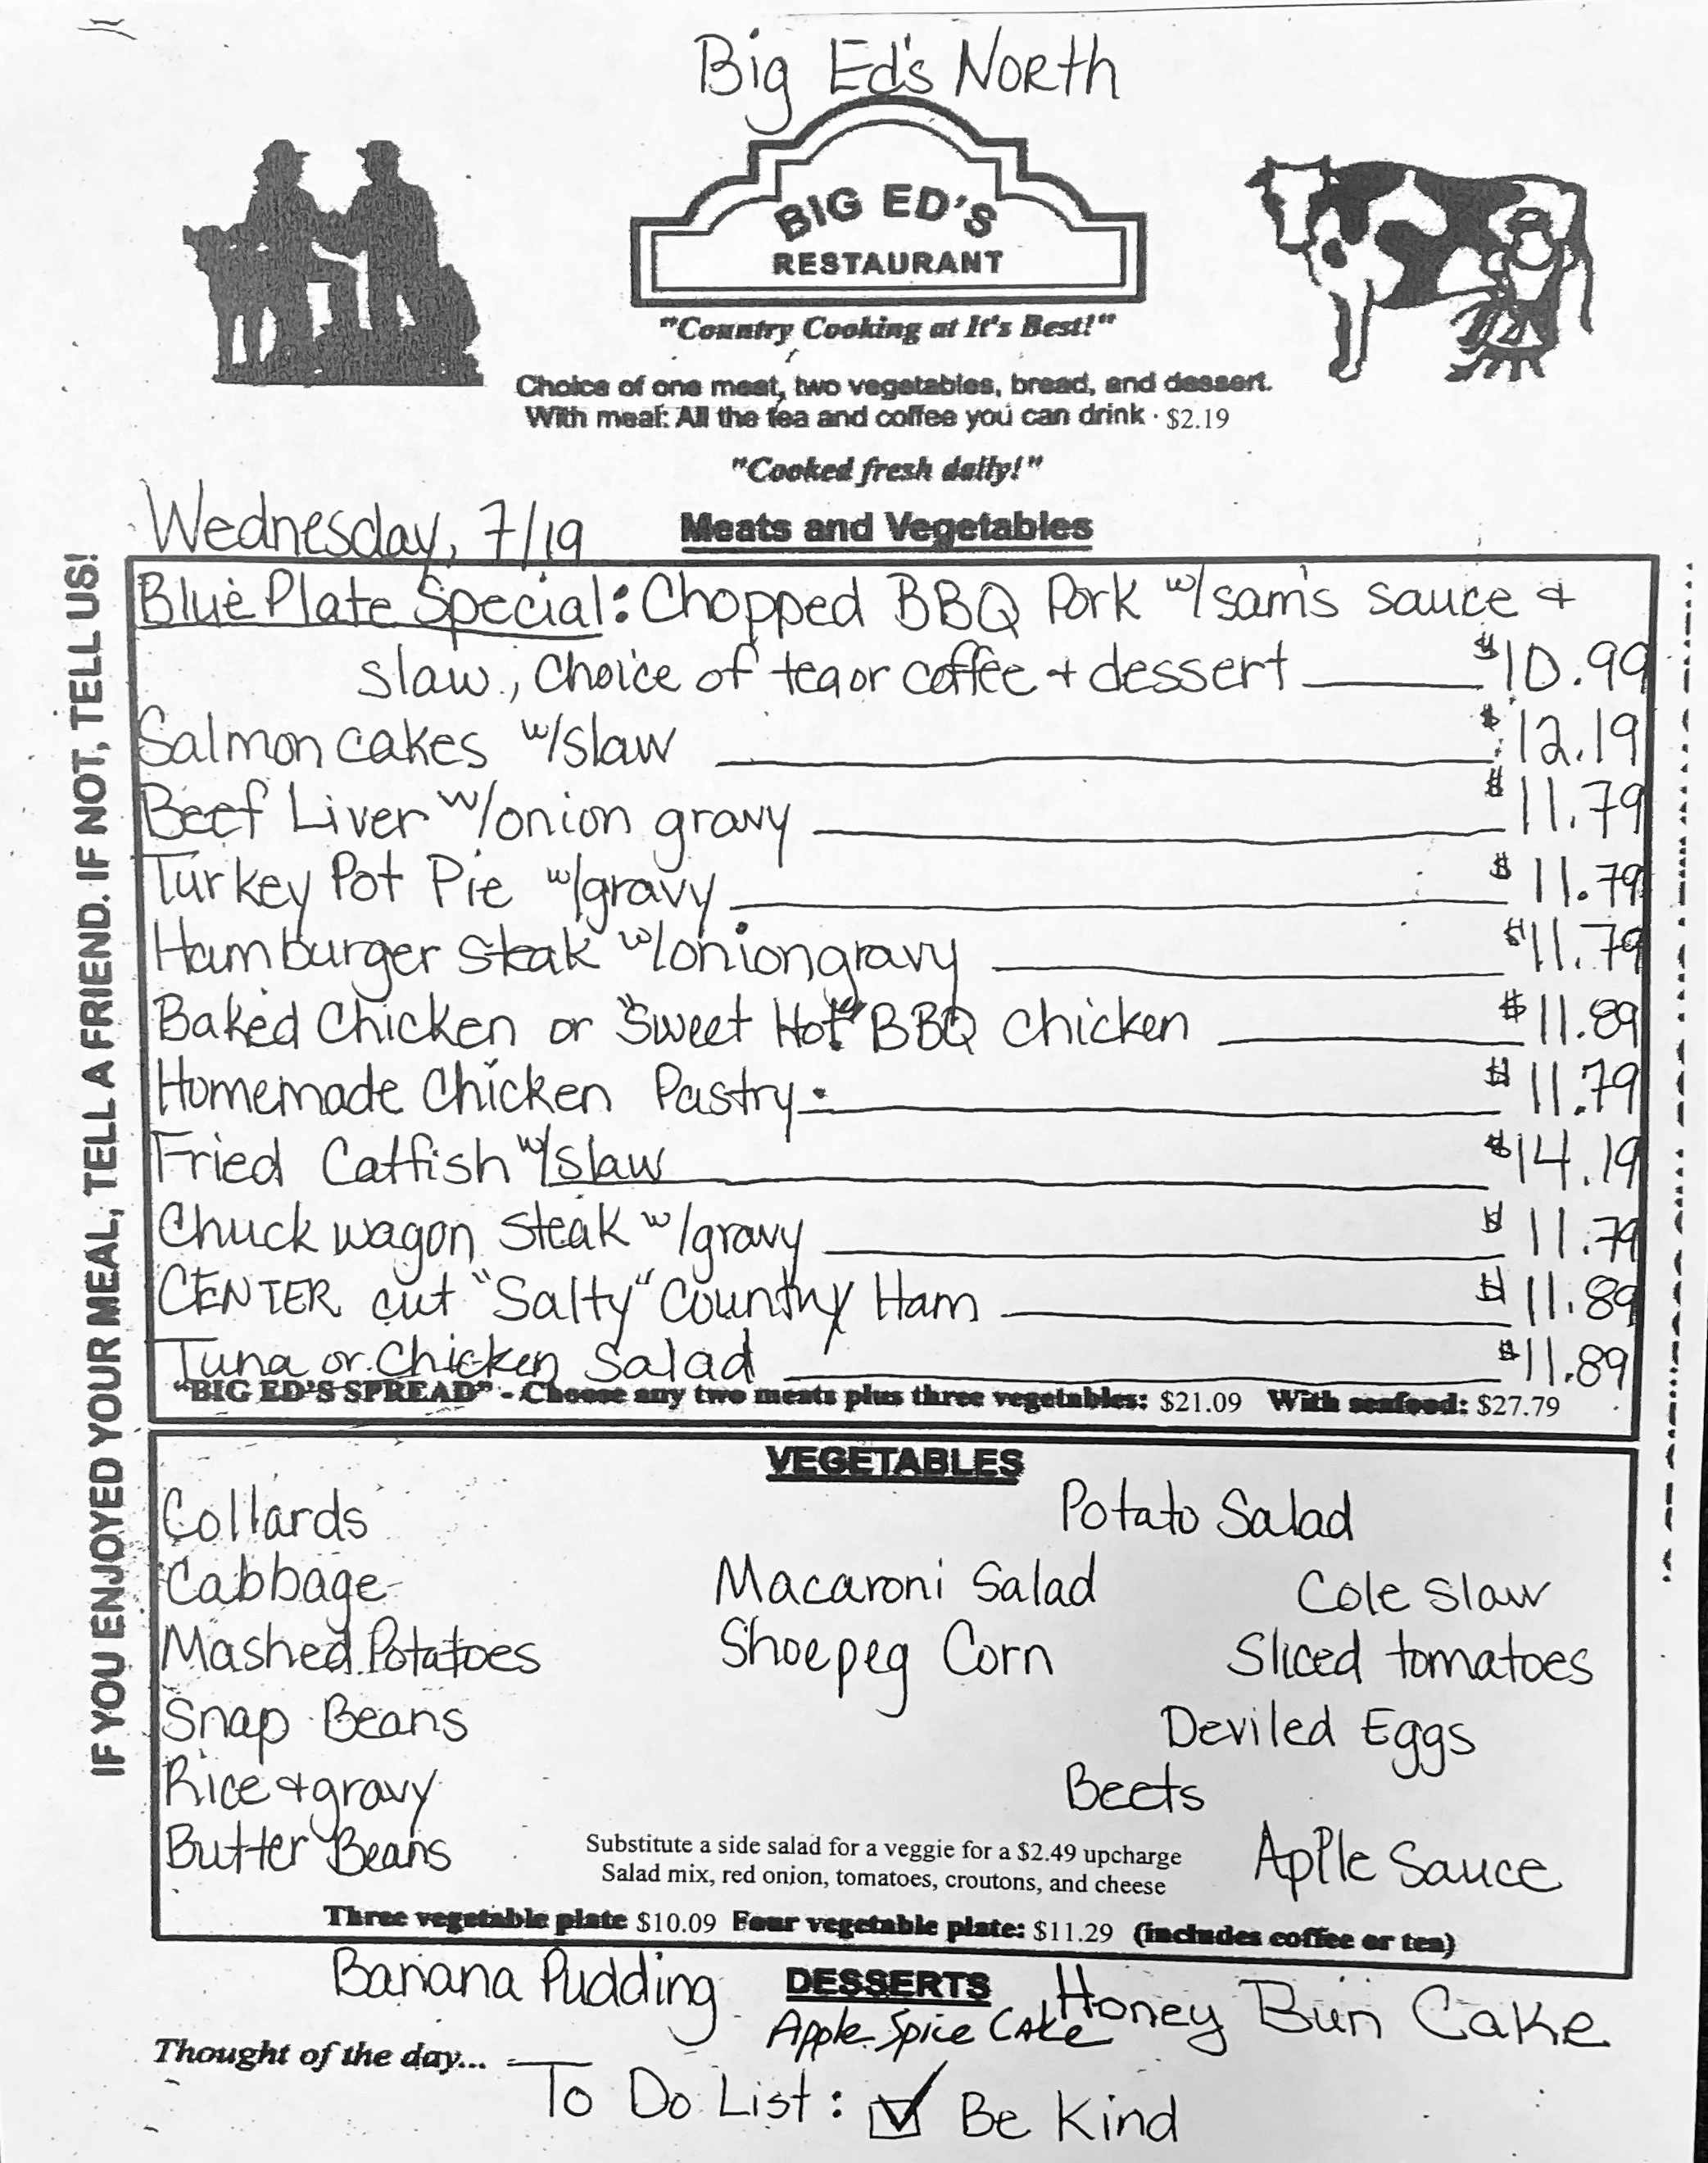 Big Ed's North
BIG ED'S
RESTAURANT
"Country Cooking at It's Best!"
Choice of one meat, two vegetables, bread, and dessert.
With meal: All the tea and coffee you can drink · $2.19
"Cooked fresh daily!"
Wednesday, 7/19
Meats and Vegetables
Blue Plate Special: Chopped BBQ Pork w/sam's sauce +
slaw, choice of tea or coffee + dessert $10.99
Salmon cakes w/slaw $12.19
Beef Liver w/onion gravy $11.79
Turkey Pot Pie w/gravy $11.79
Hamburger Steak w/onion gravy $11.79
Baked Chicken or "Sweet Hot" BBQ chicken $11.89
Homemade Chicken Pastry $11.79
Fried Catfish w/slaw $14.19
Chuck wagon Steak w/gravy $11.79
CENTER cut "Salty" Country Ham $11.89
Tuna or Chicken Salad $11.89
"BIG ED'S SPREAD" - Choose any two meats plus three vegetables: $21.09 With seafood: $27.79
IF YOU ENJOYED YOUR MEAL, TELL A FRIEND. IF NOT, TELL US!
VEGETABLES
Collards Potato Salad
Cabbage Macaroni Salad Cole Slaw
Mashed Potatoes Shoepeg Corn Sliced tomatoes
Snap Beans Deviled Eggs
Rice + gravy Beets
Butter Beans Apple Sauce
Substitute a side salad for a veggie for a $2.49 upcharge
Salad mix, red onion, tomatoes, croutons, and cheese
Three vegetable plate $10.09 Four vegetable plate: $11.29 (includes coffee or tea)
DESSERTS
Banana Pudding Apple Spice Cake Honey Bun Cake
Thought of the day...
To Do List: ☑ Be Kind